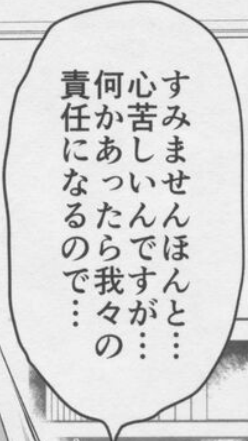 すみませんほんと…
心苦しいんですが…
何かあったら我々の
責任になるので…